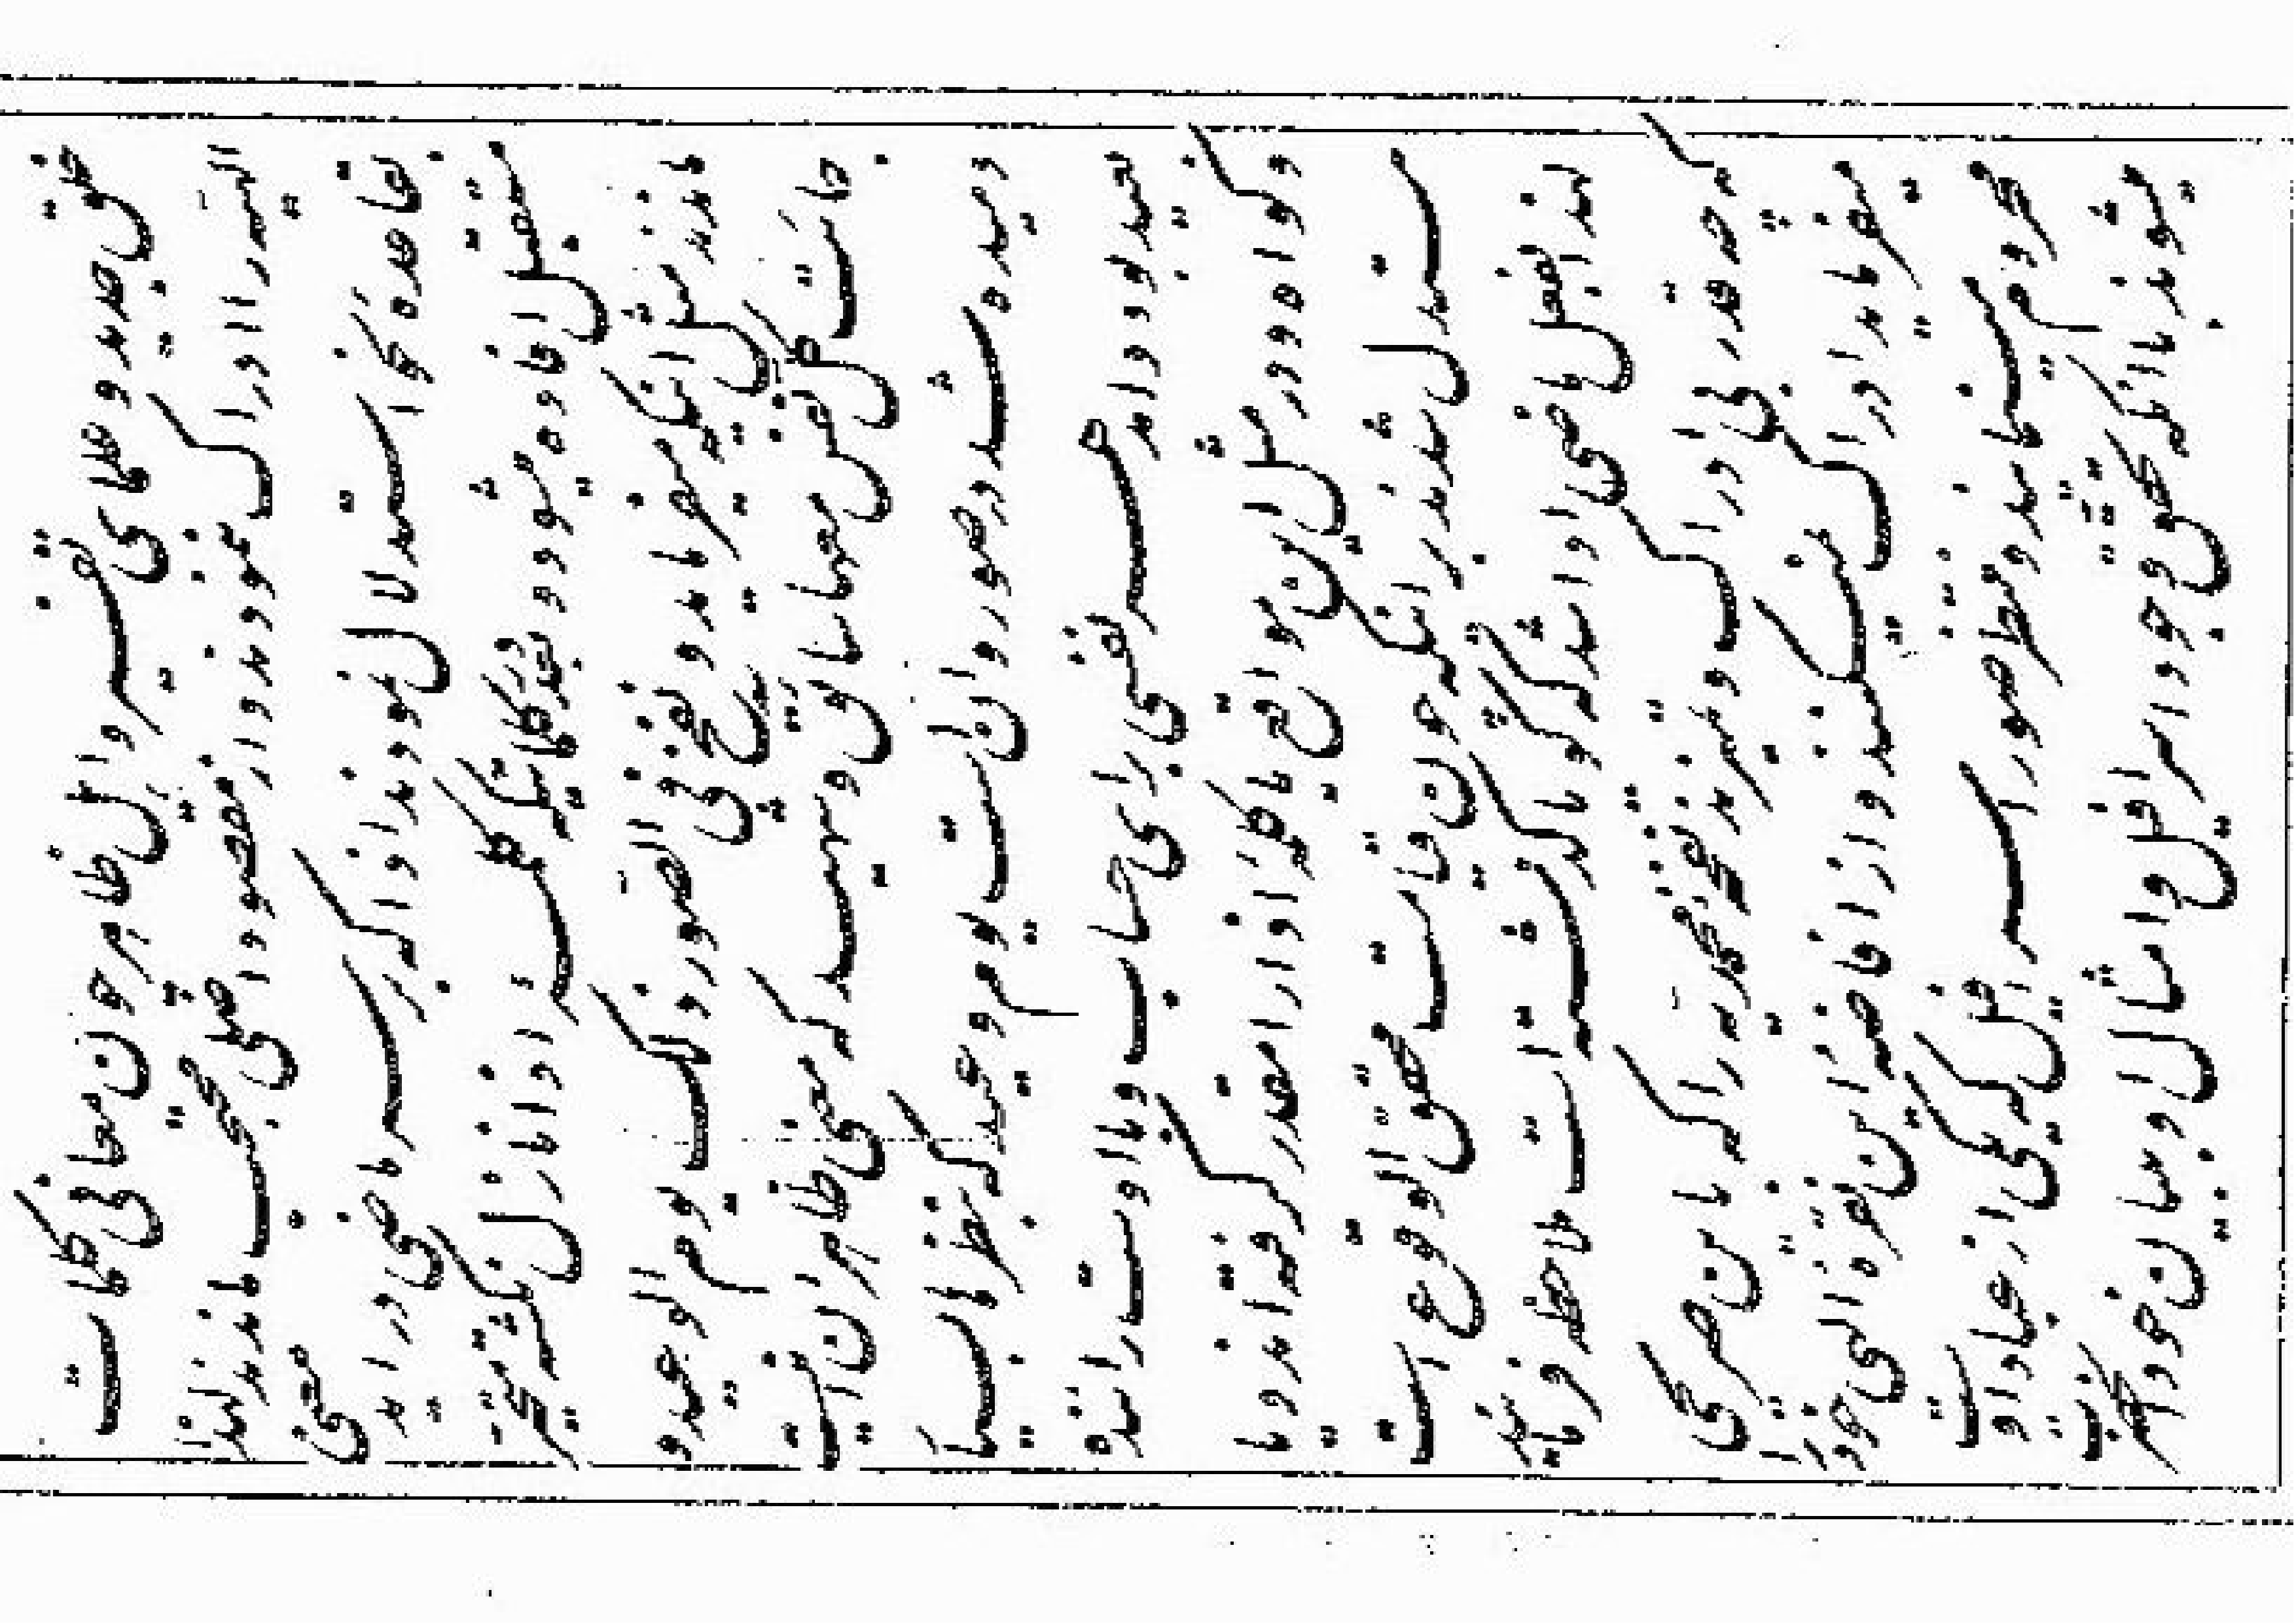 حق جدید و علمای تفسیر و اهل ظاهر چون معانی کلمات
الهیه را ادراک ننمودند و از مقصود اصلی محتجب ماندند لهذا
بقاعده نحو استدلال نمودند که اذا که بر سر ماضی در آید معنی
مستقبل افاده میشود و بعد در کلماتیکه کلمه اذا نازل نگشته متحیر
ماندند مثل اینکه میفرماید و نفخ فی الصور ذلک یوم الوعید و
جائت کل نفس معها سائق و شهید که معنی ظاهر آن اینست
دمیده شد در صور و آن است یوم وعید که بنظرها بسیار
بعید بود و آمد هر نفسی برای حساب و با اوست راننده
و گواه و در مثل این مواقع یا کلمه اذا را مقدر گرفتند و یا
مستدل شدند بر اینکه چون قیامت محقق الوقوع است
لهذا بفعل ماضی ادا شد که گویا گذشته است ملاحظه فرمائید
چه قدر بی ادراک و تمیزند نفخه محمدیه را که باین صریحی
میفرماید ادراک نمیکنند و از افاضه این نقره الهی خود را
محروم مینمایند و منتظر صور اسرافیل که یکی از عباد اوست
میشوند با اینکه تحقق وجود اسرافیل و امثال او ببیان خود